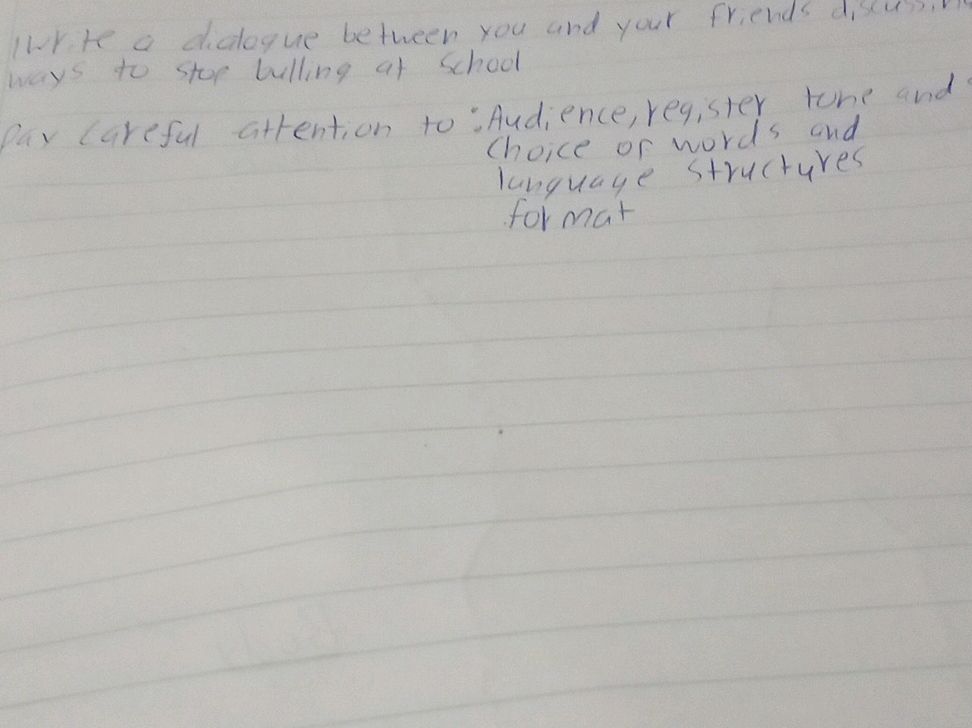 write a dialogue between you and your friends discussing
ways to stop bulling at school
Pay careful attention to : Audience, register tone and
choice of words and
language structures
format